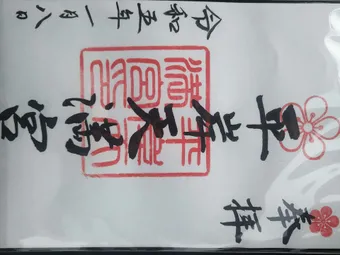 奉拝
平岸天満宮
令和五年一月八日